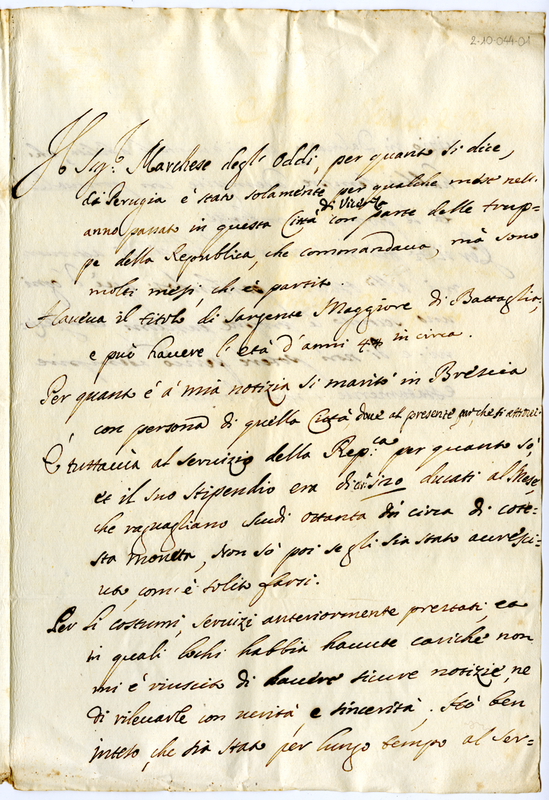 2-10-044-01
Il Sig.r Marchese degl' Oddi, per quanto si dice,
da Perugia è stato solamente per qualche mese nell'
anno passato in questa Città di Vicenza con parte delle trup=
pe della Republica, che commandava, mà sono
molti mesi, che è partito.
Haveva il titolo di Sargente Maggiore di Battaglia,
e può havere l'età d'anni in circa.
Per quanto è à mia notizia si maritò in Brescia
con persona di quella Città dove al presente
È tuttavia al servizio della Rep.ca per quanto sò,
et il suo stipendio era di ducati al Mese,
che raguagliano scudi ottanta in circa di cote=
sta moneta, Non sò poi se gli sia stato accresci=
uto, com'è solito farsi.
Per li costumi, servizi anteriormente prestati, ea
in quali lochi habbia havute cariche non
mi è riuscito di havere sicure notizie, ne
di rilevarle con verità, e sincerità. Hò ben
inteso, che sia stato per lungo tempo al ser=